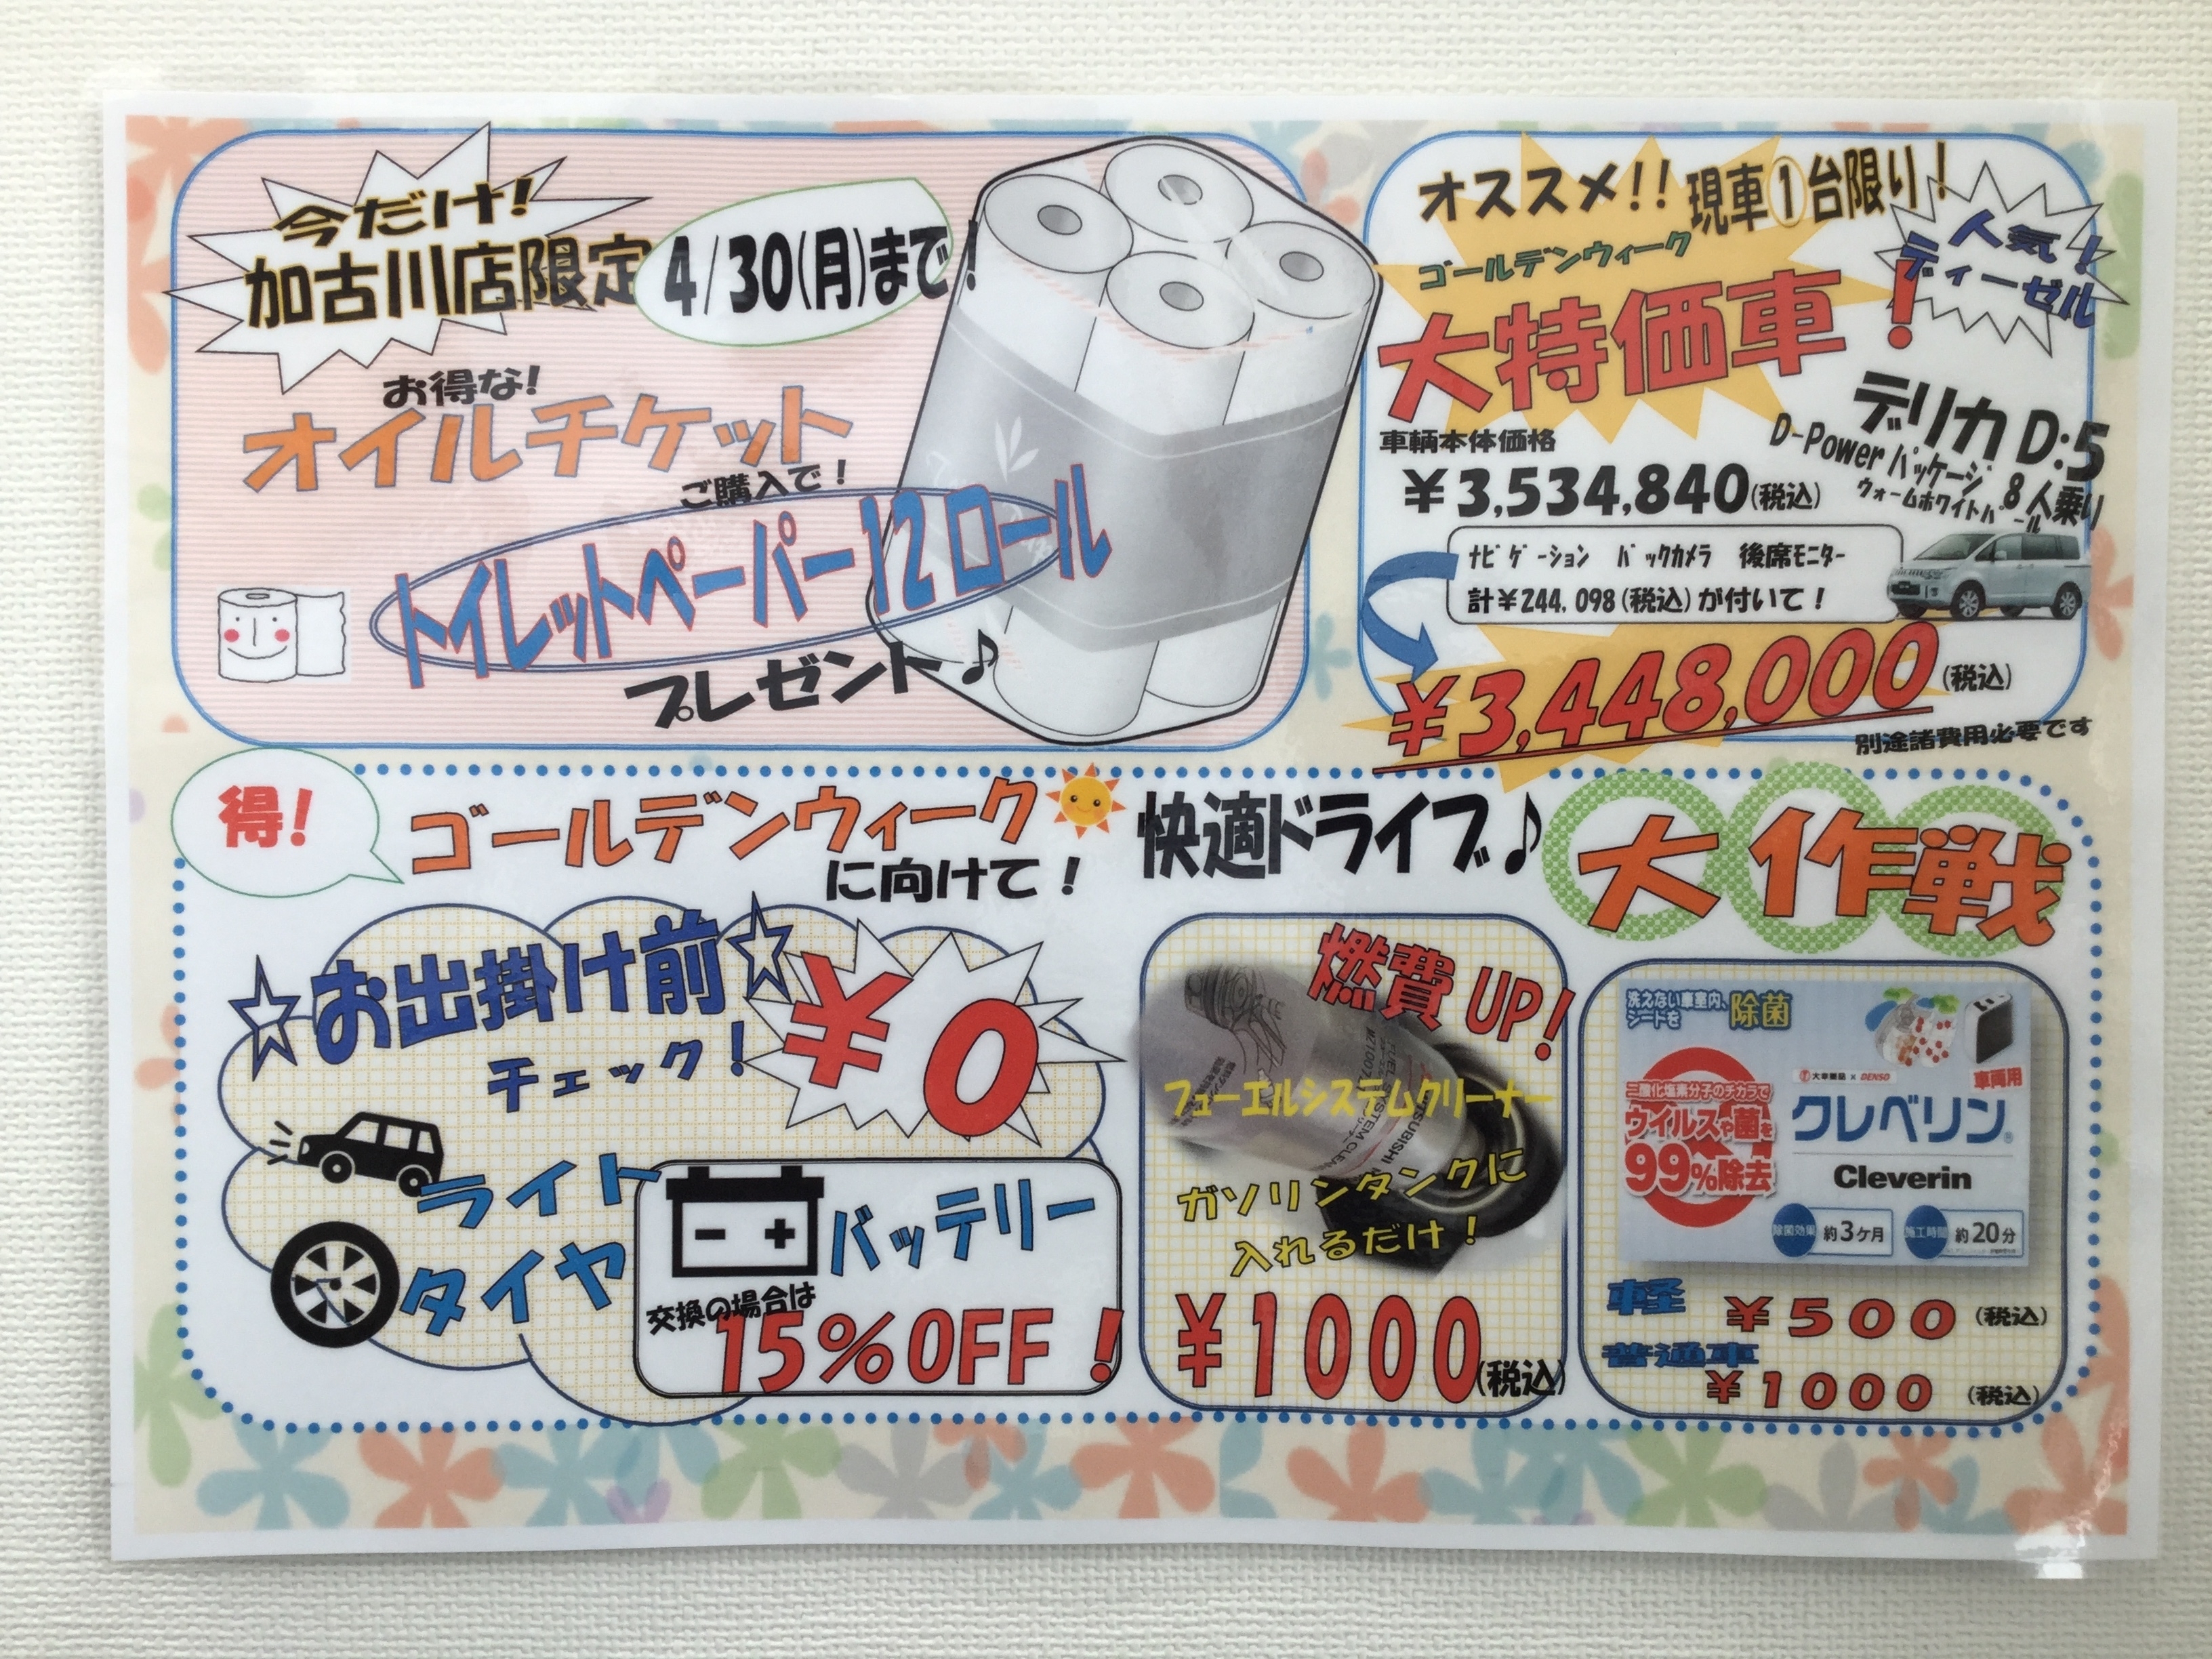 今だけ!
加古川店限定
4/30(月)まで!
お得な!
オイルチケット
ご購入で!
トイレットペーパー12ロール
プレゼント♪
オススメ!!現車①台限り!
ゴールデンウィーク
大特価車!
人気!
ディーゼル
デリカD:5
D-Powerパッケージ 8人乗り
ウォームホワイトパール
車輌本体価格
¥3,534,840(税込)
ナビゲーション バックカメラ 後席モニター
計¥244,098(税込)が付いて!
¥3,448,000(税込)
別途諸費用必要です
得!
ゴールデンウィーク
に向けて!
快適ドライブ♪
大作戦
☆お出掛け前☆
チェック!
¥0
ライト
タイヤ
バッテリー
交換の場合は
15%OFF!
燃費UP!
フューエルシステムクリーナー
ガソリンタンクに
入れるだけ!
¥1000(税込)
洗えない車室内、
シートを 除菌
二酸化塩素分子のチカラで
ウイルスや菌を
99%除去
大幸薬品×DENSO
車両用
クレベリン®
Cleverin
除菌効果 約3ヶ月
施工時間 約20分
軽
¥500(税込)
普通車
¥1000(税込)